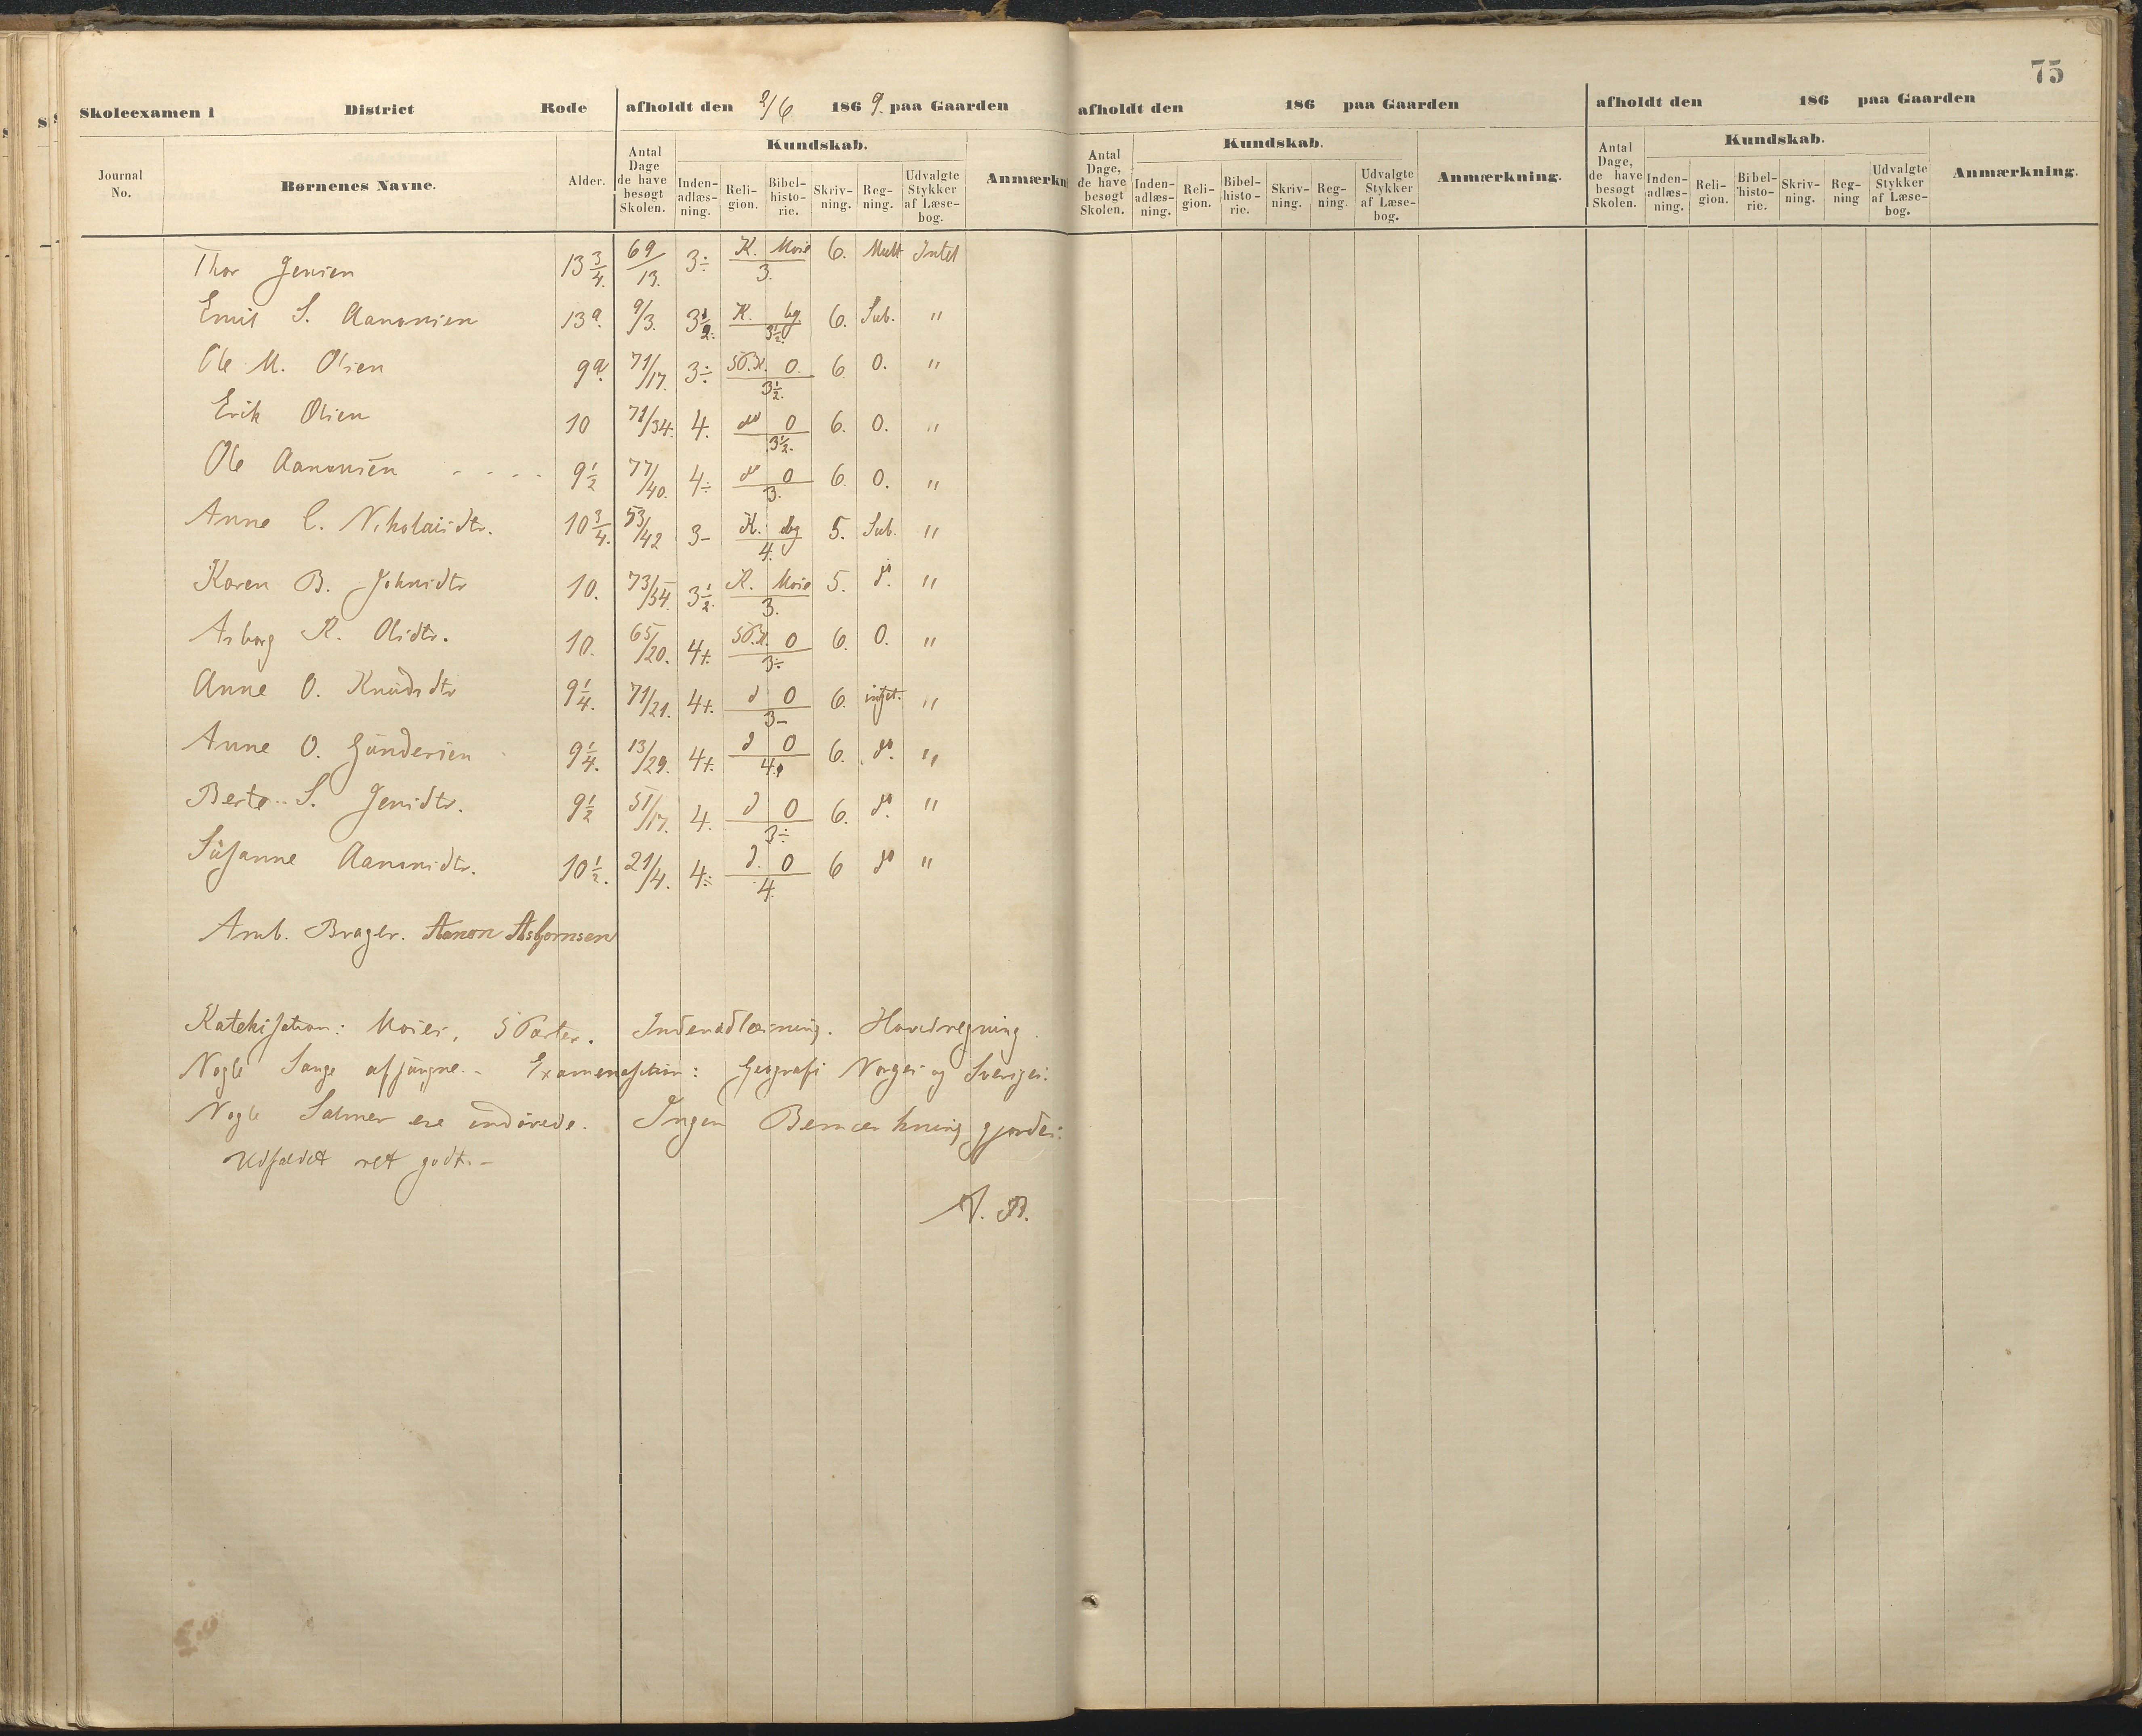 75
Skoleexamen i District Rode afholdt den 2/6 1869. paa Gaarden afholdt den 186 paa Gaarden afholdt den 186 paa Gaarden
Journal No. Børnenes Navne. Alder. Antal Dage de have besøgt Skolen. Kundskab. Inden-adlæs-ning. Reli-gion. Bibel-histo-rie. Skriv-ning. Reg-ning. Udvalgte Stykker af Læse-bog. Anmærkn
Antal Dage, de have besøgt Skolen. Kundskab. Inden-adlæs-ning. Reli-gion. Bibel-histo-rie. Skriv-ning. Reg-ning. Udvalgte Stykker af Læse-bog. Anmærkning.
Antal Dage, de have besøgt Skolen. Kundskab. Inden-adlæs-ning. Reli-gion. Bibel-histo-rie. Skriv-ning. Reg-ning Udvalgte Stykker af Læse-bog. Anmærkning.
Thor Jensen 13 3/4. 69/13. 3÷ K. Mose 3. 6. Mult Intet
Emil S. Aanonsen 9/3. 3 1/2. K. 3 1/2. 6. Sub. "
Ole M. Olsen 71/17. 3÷ 5 P.K. 0. 3 1/2. 6 0. "
Erik Olsen 10 71/34. 4. do 0 3 1/2. 6. 0. "
Ole Aanonsen - - - - 9 1/2 77/40. 4÷ do 0 3. 6. 0. "
Anne C. Nikolaisdtr. 10 3/4. 53/42 3- K. 4. 5. Sub. "
Karen B. Johnsdtr 10. 73/54. 3 1/2. K. Mose 3. 5. do. "
Asborg K. Olsdtr. 10. 65/20. 4+. 5 P.K. 0 3÷ 6. 0. "
Anne O. Knudsdtr 9 1/4. 71/21. 4+. d 0 3- 6. intet. "
Anne O. Gundersen 9 1/4. 13/29. 4+. d 0 4. 6. do. "
Berte S. Jensdtr. 9 1/2 51/17. 4. d 0 3÷ 6. do. "
Susanne Aanonsdtr. 10 1/2. 21/4. 4÷ d. 0 4. 6 do "
Amb. Brager. Aanon Asbjornsen
Katekisation: Moses, 5 Parter. Indenadlæsning. Hovedregning.
Nogle Sange afsungne. - Examenation: Geografi Norges og Sveriges.
Nogle Salmer ere indøvede. Ingen Bemærkning gjordes.
Udfaldet ret godt. -